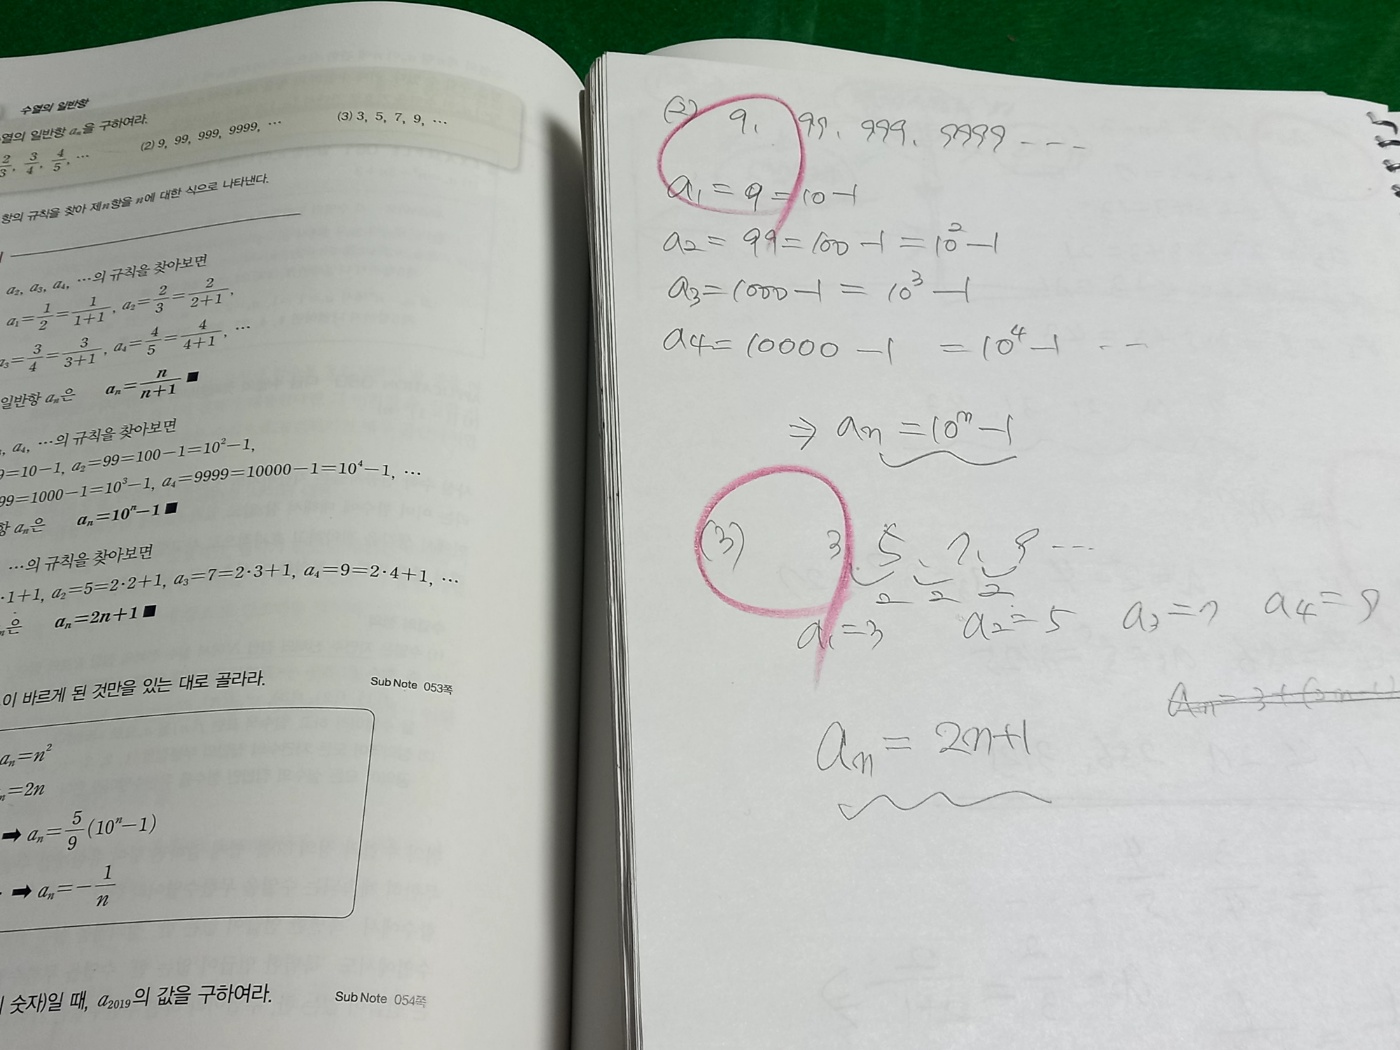 수열의 일반항
열의 일반항 aₙ을 구하여라.
2/3, 3/4, 4/5, ⋯ (2) 9, 99, 999, 9999, ⋯ (3) 3, 5, 7, 9, ⋯
항의 규칙을 찾아 제n항을 n에 대한 식으로 나타낸다.
a₂, a₃, a₄, ⋯의 규칙을 찾아보면
a₁=1/2=1/(1+1), a₂=2/3=2/(2+1),
a₃=3/4=3/(3+1), a₄=4/5=4/(4+1), ⋯
일반항 aₙ은 aₙ=n/(n+1) ■
, a₄, ⋯의 규칙을 찾아보면
9=10−1, a₂=99=100−1=10²−1,
99=1000−1=10³−1, a₄=9999=10000−1=10⁴−1, ⋯
항 aₙ은 aₙ=10ⁿ−1 ■
⋯의 규칙을 찾아보면
·1+1, a₂=5=2·2+1, a₃=7=2·3+1, a₄=9=2·4+1, ⋯
ₙ은 aₙ=2n+1 ■
이 바르게 된 것만을 있는 대로 골라라. Sub Note 053쪽
aₙ=n²
ₙ=2n
➡ aₙ=5/9(10ⁿ−1)
· ➡ aₙ=−1/n
숫자)일 때, a₂₀₁₉의 값을 구하여라. Sub Note 054쪽
9, 99, 999, 9999 ---
a₁ = 9 = 10−1
a₂ = 99 = 100−1 = 10²−1
a₃ = 1000−1 = 10³−1
a₄ = 10000−1 = 10⁴−1 ---
⇒ aₙ = 10ⁿ−1
(3) 3, 5, 7, 9 ---
2 2 2
a₁=3 a₂=5 a₃=7 a₄=9
aₙ = 2n+1